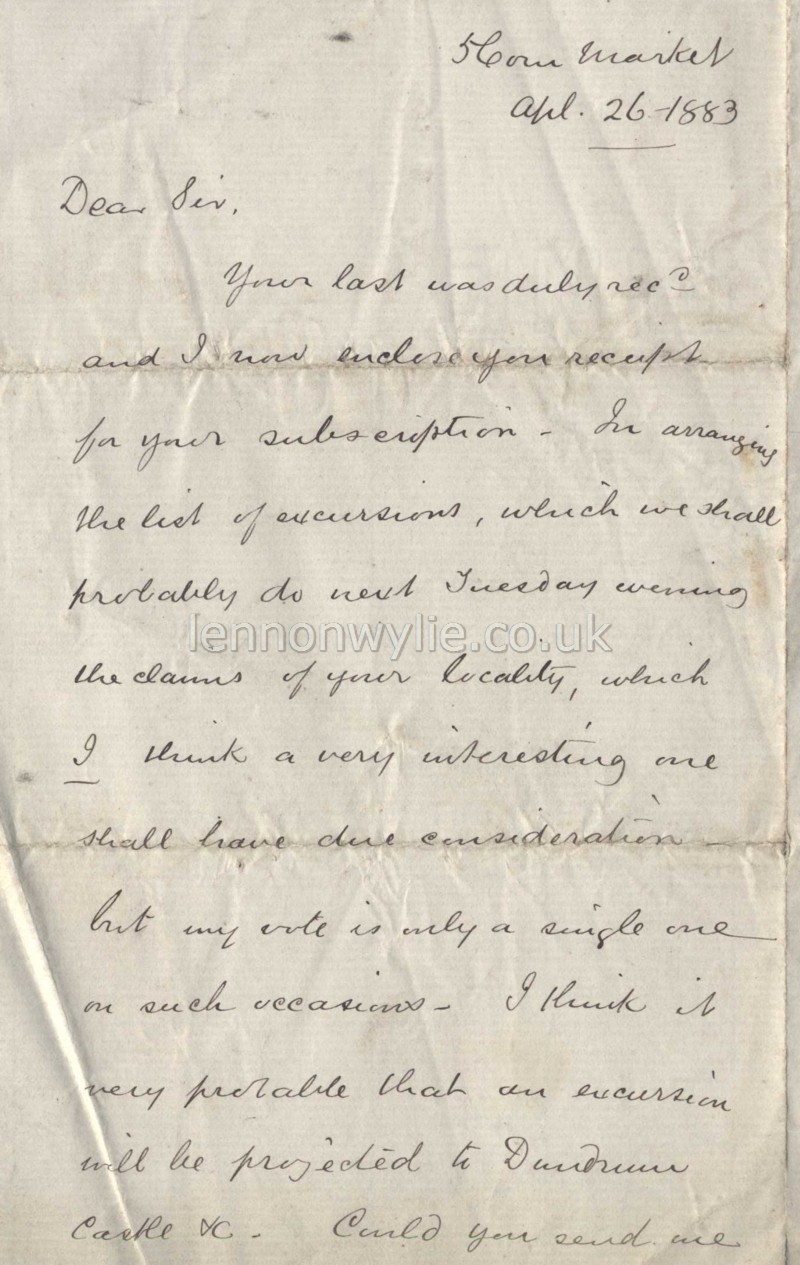 5 Corn Market
Apl. 26-1883
Dear Sir,
Your last was duly recd
and I now enclose you receipt
for your subscription - In arranging
the list of excursions, which we shall
probably do next Tuesday evening
lennonwylie.co.uk
the claims of your locality, which
I think a very interesting one
shall have due consideration -
but my vote is only a single one
on such occasions - I think it
very probable that an excursion
will be projected to Dundrum
Castle &c. Could you send me